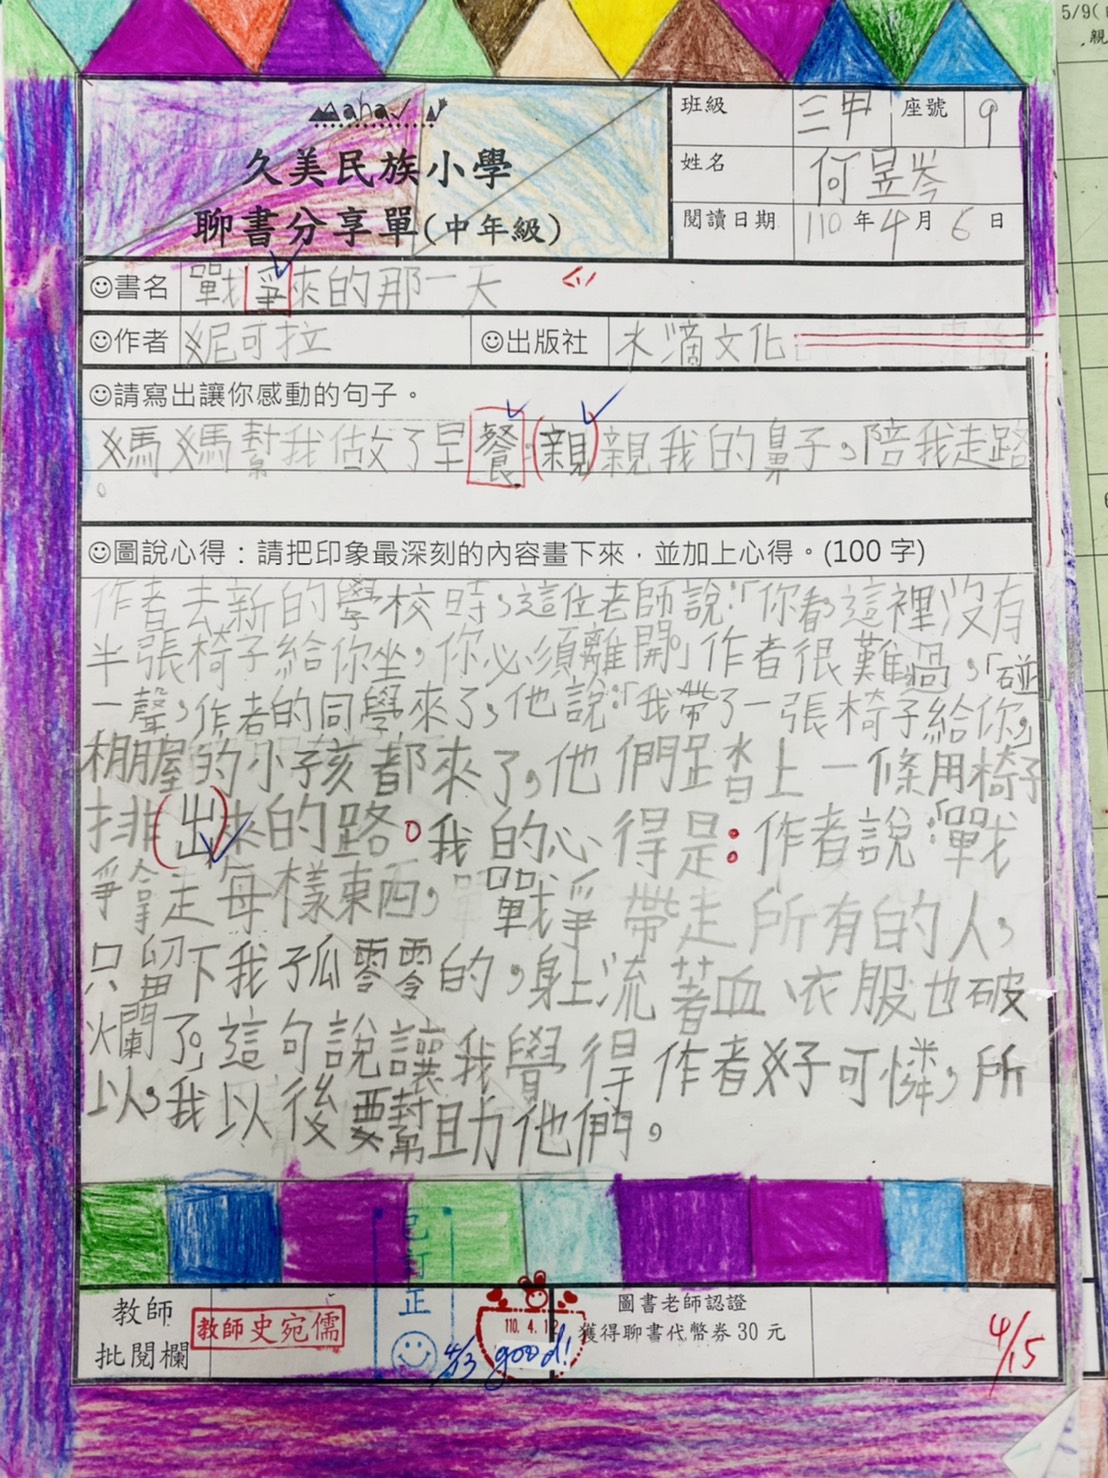 5/9(
親
Mahavun
班級 三甲 座號 9
久美民族小學
姓名 何昱岑
聊書分享單(中年級)
閱讀日期 110年4月6日
書名 戰爭來的那一天
作者 妮可拉 出版社 水滴文化
請寫出讓你感動的句子。
媽媽幫我做了早餐,親親我的鼻子,陪我走路
。
圖說心得:請把印象最深刻的內容畫下來,並加上心得。(100字)
作者去新的學校時,這位老師說:「你都這裡沒有
半張椅子給你坐,你必須離開」作者很難過,「碰
一聲,作者的同學來了,他說:「我帶了一張椅子給你」
棚屋的小孩都來了,他們踏上一條用椅子
排出來的路。我的心得是:作者說:「戰
爭拿走每樣東西,戰爭帶走所有的人,
只留下我孤零零的,身上流著血、衣服也破
爛了」這句說讓我覺得作者好可憐,所
以,我以後要幫助他們。
已訂正
教師批閱欄 教師史宛儒
110.4.12
圖書老師認證
獲得聊書代幣券30元
4/13 good!
4/15